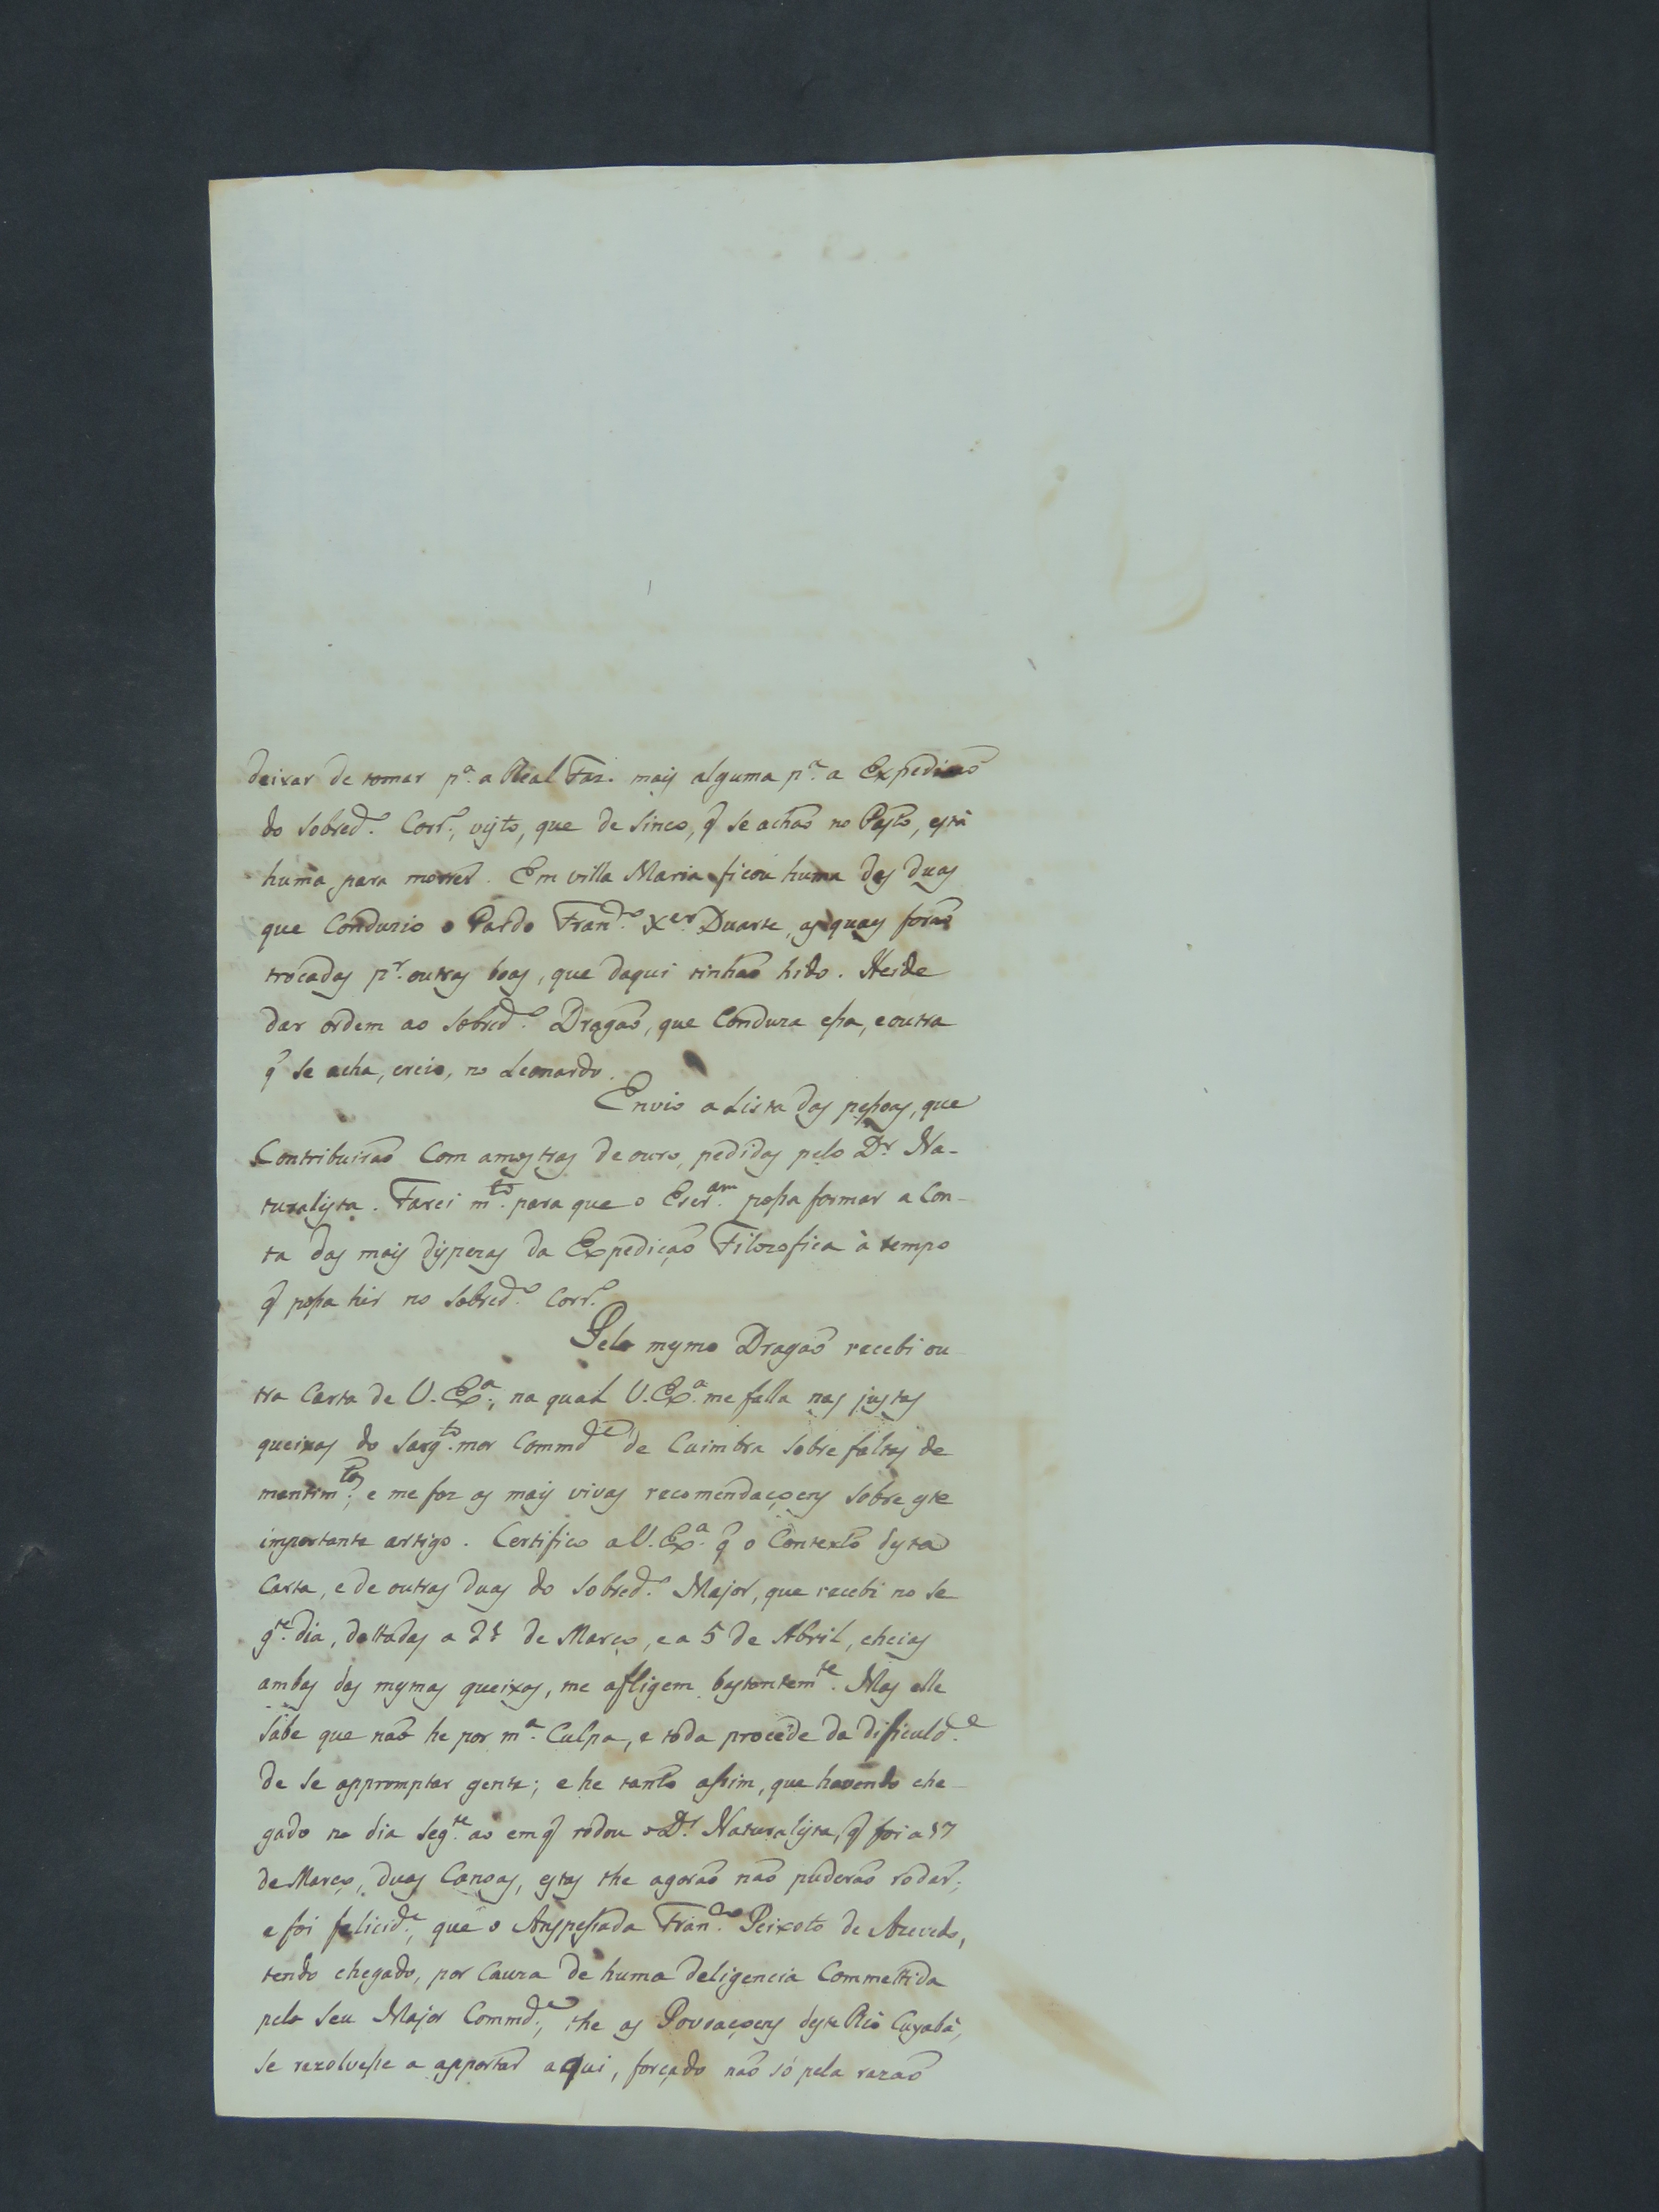 deixar de tomar p.ª a Real Faz. mais alguma p.ª a Expedição
do sobred.º Corr.º, visto, que de sinco, q̃ se achaõ no Pasto, está
huma para morrer. Em villa Maria ficou huma das duas
que Conduzio o Pardo Fran.co X.er Duarte, as quaes foraõ
trocadas p.r outras boas, que daqui tinhaõ hido. Heide
dar ordem ao sobred.º Dragaõ, que Conduza essa, e outra
q̃ se acha, creio, no Leonardo.
Envio a Lista das pessoas, que
Contribuiraõ Com amostras de ouro, pedidas pelo D.r Na-
turalista. Farei m.to para que o Escr.am possa formar a Con-
ta das mais dispezas da Expediçaõ Filozofica à tempo
q̃ possa hir no sobred.º Corr.º
Pelo mesmo Dragaõ recebi ou
tra Carta de V. Ex.ª, na qual V. Ex.ª me falla nas justas
queixas do Sarg.to mor Commd.e de Coimbra sobre faltas de
mantim.tos, e me faz as mais vivas recomendaçoens sobre este
importante artigo. Certifico a V. Ex.ª q̃ o Contexto desta
Carta, e de outras duas do sobred.º Major, que recebi no se
g.te dia, dattadas a 28 de Março, e a 5 de Abril, cheias
ambas das mesmas queixas, me afligem bastantem.te. Mas elle
sabe que naõ he por m.ª Culpa, e toda procede da dificuld.e
de se appromptar gente; e he tanto assim, que havendo che-
gado no dia seg.te ao em q̃ rodou o D.r Naturalista, q̃ foi a 17
de Março, duas Canoas, estas the agora naõ puderaõ rodar;
e foi felicid.e, que o Anspessada Fran.co Peixoto de Azevedo,
tendo chegado, por Cauza de huma deligencia Commettida
pelo seu Major Commd.e, the as Povoaçoens deste Rio Cuyabá,
se rezolvesse a apportar aqui, forçado naõ só pela razaõ